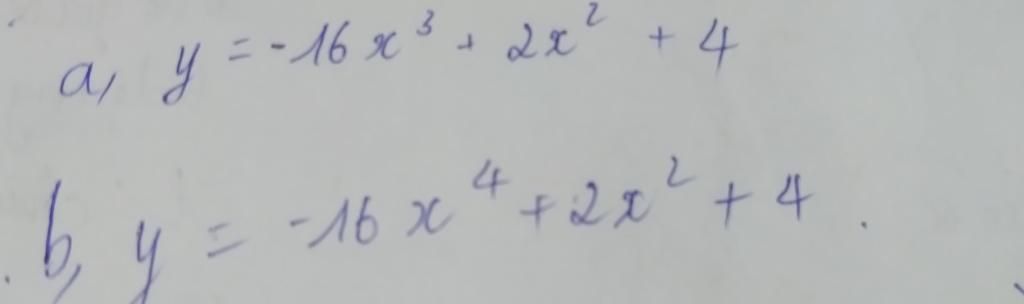 a, y = -16x³ + 2x² + 4
b, y = -16x⁴ + 2x² + 4.